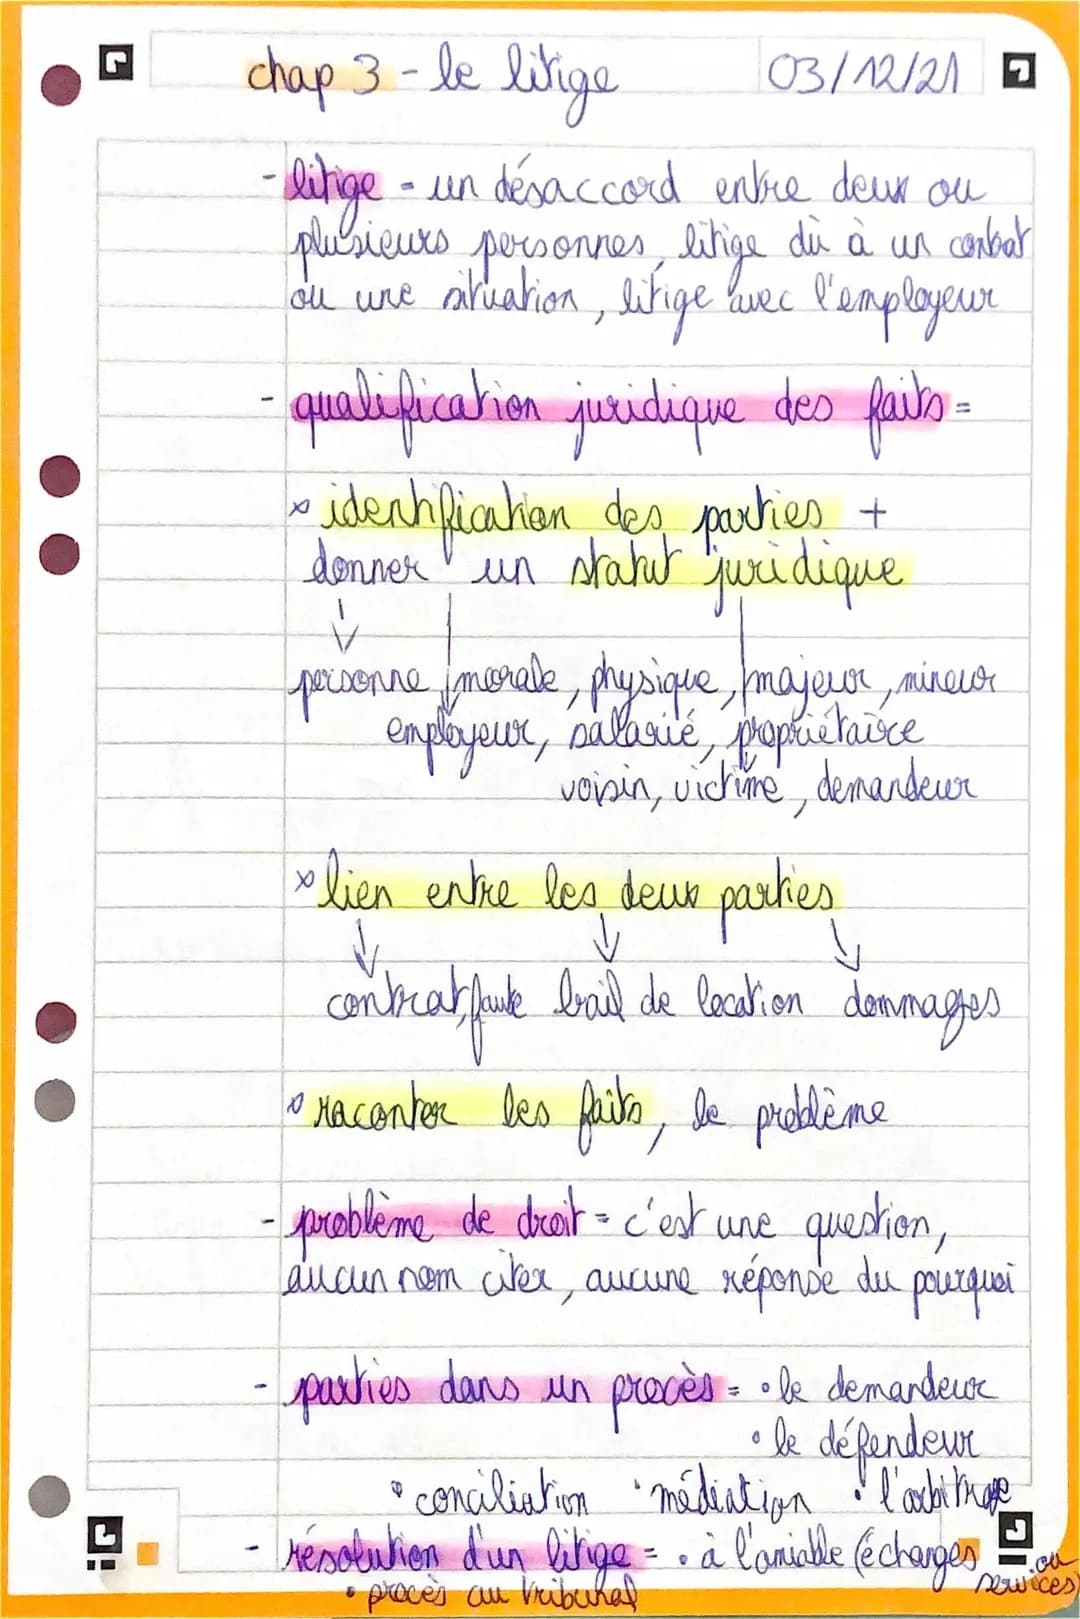 chap 3 - le litige
03/12/21
- litige - un désaccord entre deux ou
plusieurs personnes, litige dû à un contrat
ou une situation, litige avec l'employeur
- qualification juridique des faits =
x identification des parties +
donner un statut juridique
personne morale, physique, majeur, mineur
employeur, salarié, propriétaire
voisin, victime, demandeur
x lien entre les deux parties
contrat, faute bail de location dommages
x raconter les faits, le problème
- problème de droit = c'est une question,
aucun nom citer, aucune réponse du pourquoi
- parties dans un procès = • le demandeur
• le défendeur
• conciliation • médiation • l'arbitrage
- résolution d'un litige = • à l'amiable (échanges ou
services)
• procès au tribunal